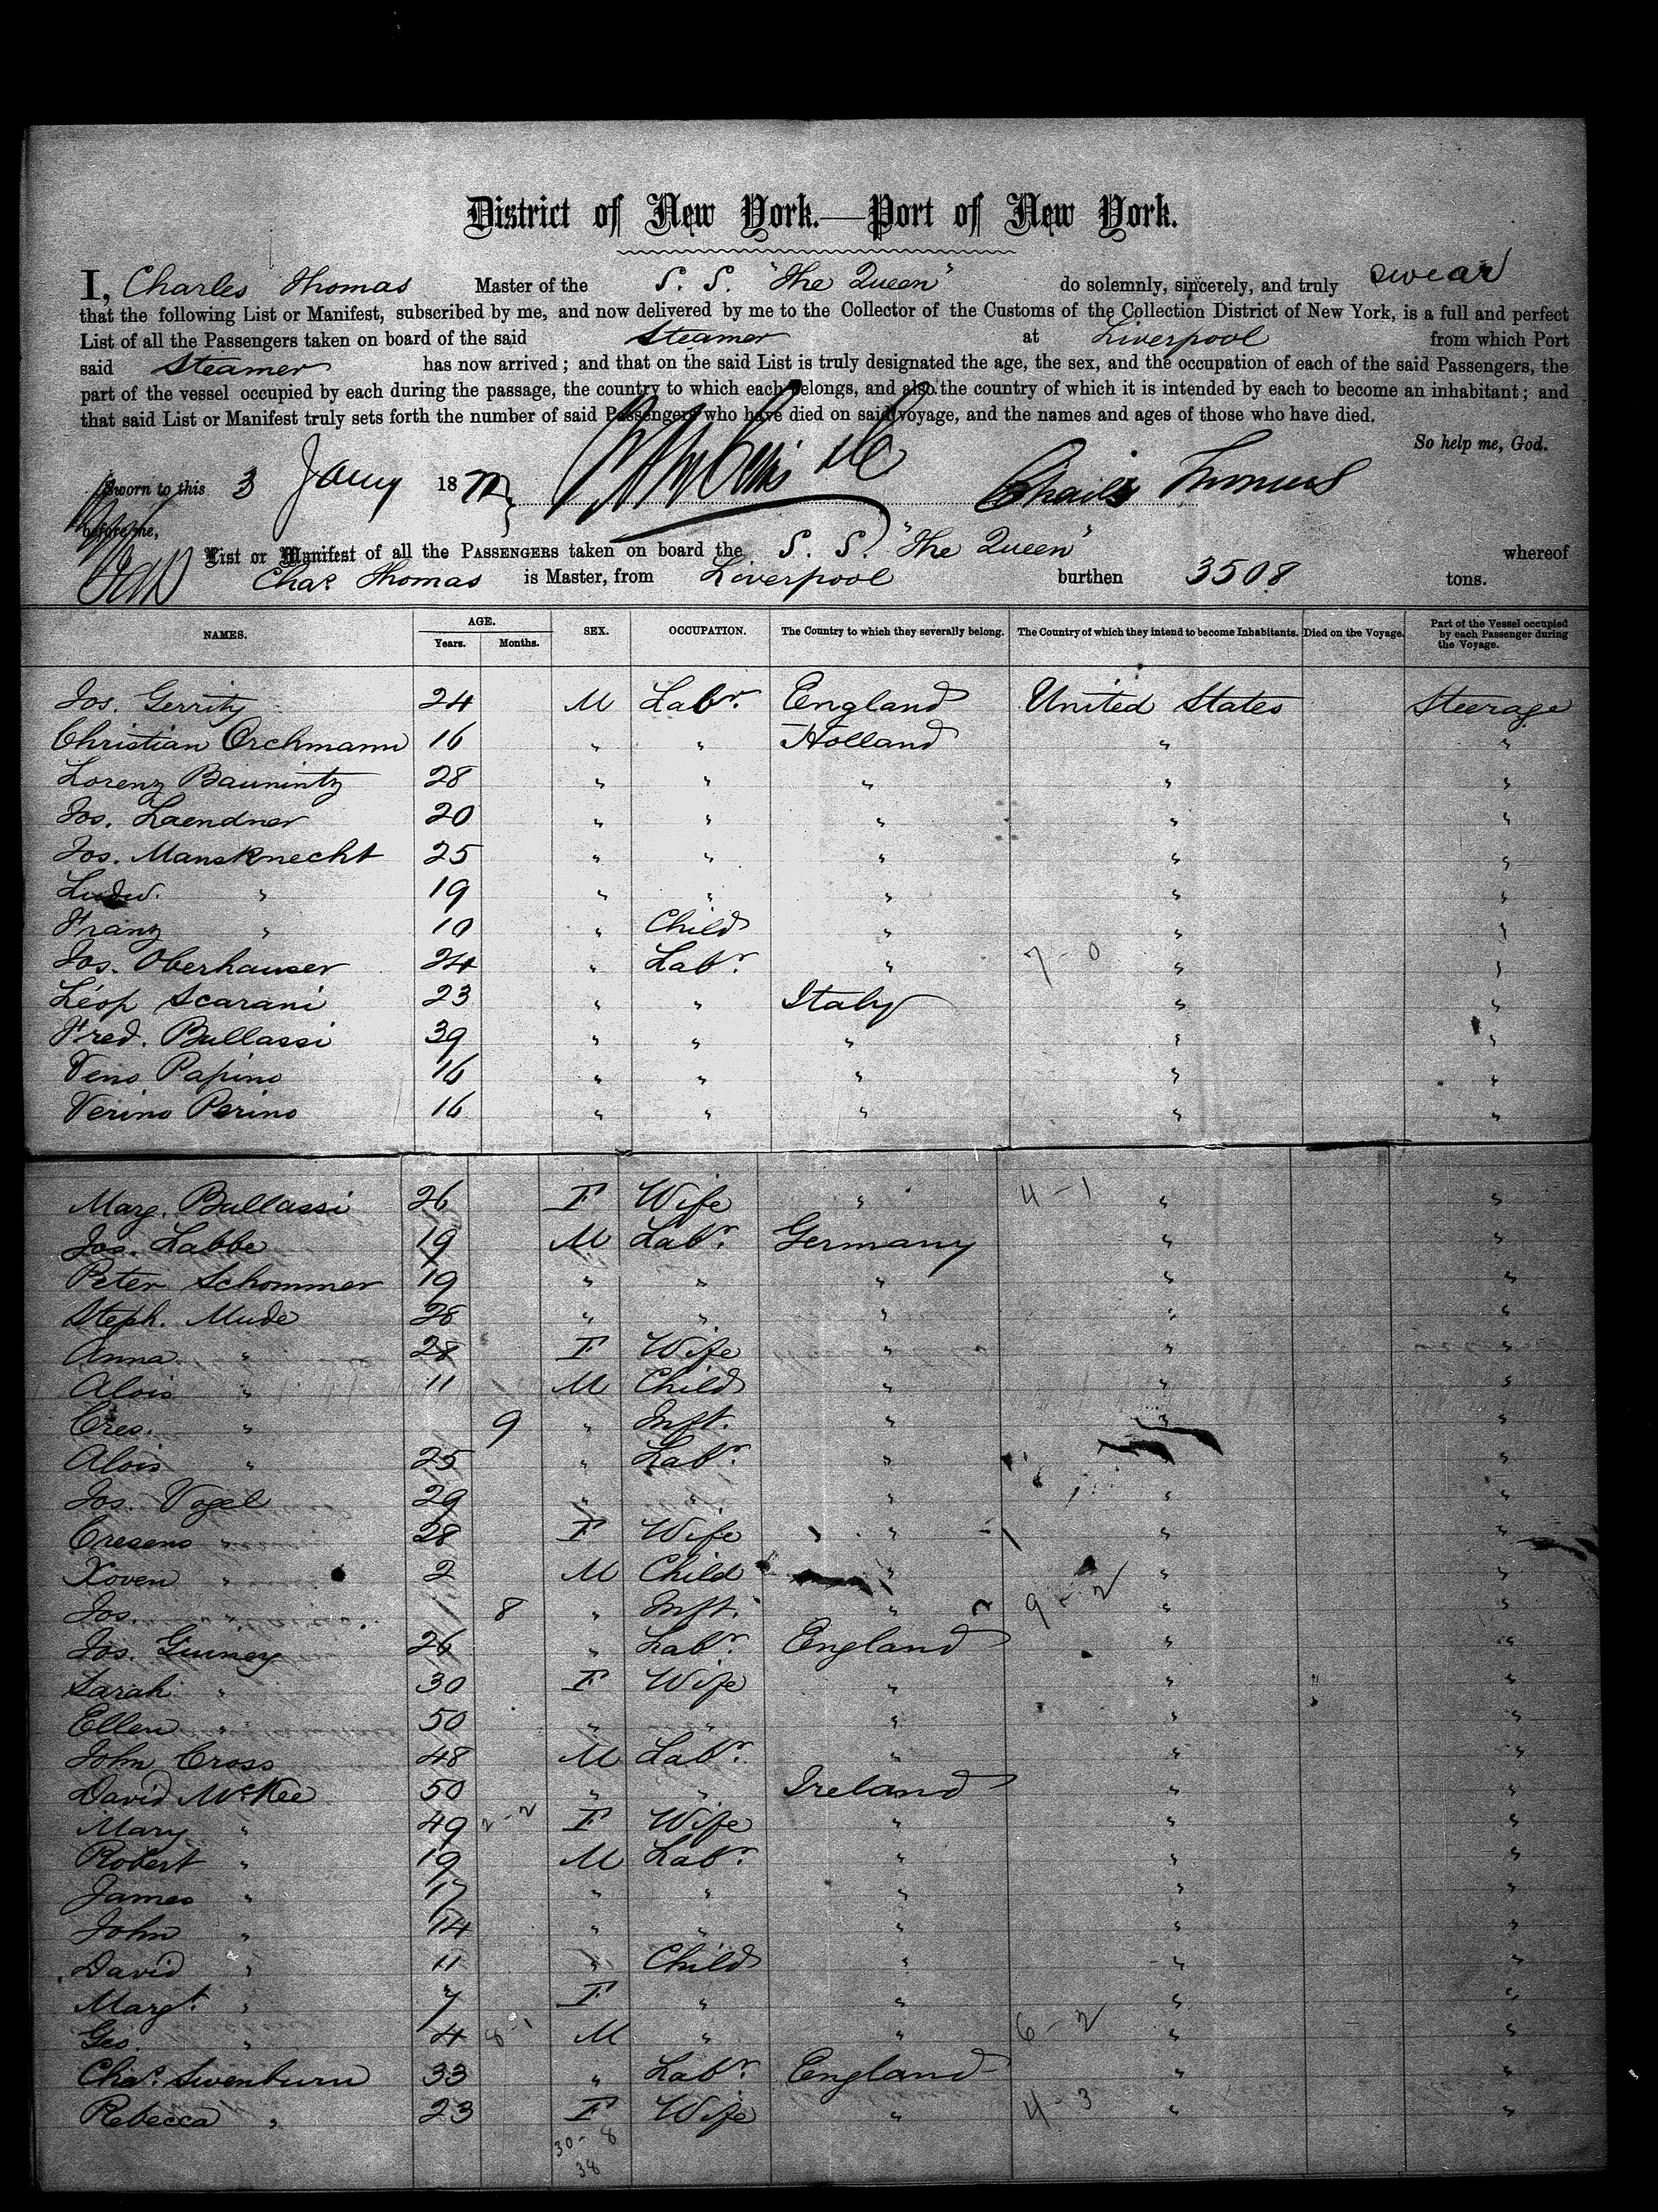 District of New York.—Port of New York.
I, Charles Thomas Master of the S. S. "The Queen" do solemnly, sincerely, and truly swear
that the following List or Manifest, subscribed by me, and now delivered by me to the Collector of the Customs of the Collection District of New York, is a full and perfect
List of all the Passengers taken on board of the said Steamer at Liverpool from which Port
said Steamer has now arrived; and that on the said List is truly designated the age, the sex, and the occupation of each of the said Passengers, the
part of the vessel occupied by each during the passage, the country to which each belongs, and also the country of which it is intended by each to become an inhabitant; and
that said List or Manifest truly sets forth the number of said Passengers who have died on said voyage, and the names and ages of those who have died.
So help me, God.
Sworn to this 3 Jany 18 Charles Thomas
before me,
List or Manifest of all the PASSENGERS taken on board the S. S. "The Queen" whereof
Chas. Thomas is Master, from Liverpool burthen 3508 tons.
NAMES. AGE. Years. Months. SEX. OCCUPATION. The Country to which they severally belong. The Country of which they intend to become Inhabitants. Died on the Voyage. Part of the Vessel occupied by each Passenger during the Voyage.
Jos. Gerrity 24 M Labr. England United States Steerage
Christian Orchmann 16 " " Holland " "
Lorenz Baunintz 28 " " " " "
Jos. Laendner 20 " " " " "
Jos. Mansknecht 25 " " " " "
Ludw. " 19 " " " " "
Franz " 10 " Child " " "
Jos. Oberhauser 24 " Labr. " 7-0 " "
Léop Scarani 23 " " Italy " "
Fred. Bullassi 39 " " " " "
Veno Papino 16 " " " " "
Verino Perino 16 " " " " "
Marg. Bullassi 26 F Wife " 4-1 " "
Jos. Labbe 19 M Labr. Germany " "
Peter Schommer 19 " " " " "
Steph. Mude 28 " " " " "
Anna " 28 F Wife " " "
Alois " 11 M Child " " "
Cres. " 9 " Inft. " " "
Alois " 25 " Labr. " " "
Jos. Vogel 29 " " " " "
Cresens " 28 F Wife " " "
Xoven " 2 M Child " " "
Jos. " 8 " Inft. " 9-2 " "
Jos. Guiney 26 " Labr. England " "
Sarah " 30 F Wife " " "
Ellen " 50 " " " " "
John Cross 48 M Labr. " " "
David McKee 50 " " Ireland " "
Mary " 49 2-2 F Wife " " "
Robert " 19 M Labr. " " "
James " 17 " " " " "
John " 14 " " " " "
David " 11 " Child " " "
Margt. " 7 F " " " "
Geo. " 4 8-1 M " " 6-2 " "
Chas. Swenburn 33 " Labr. England " "
Rebecca " 23 F Wife " 4-3 " "
30-8
38